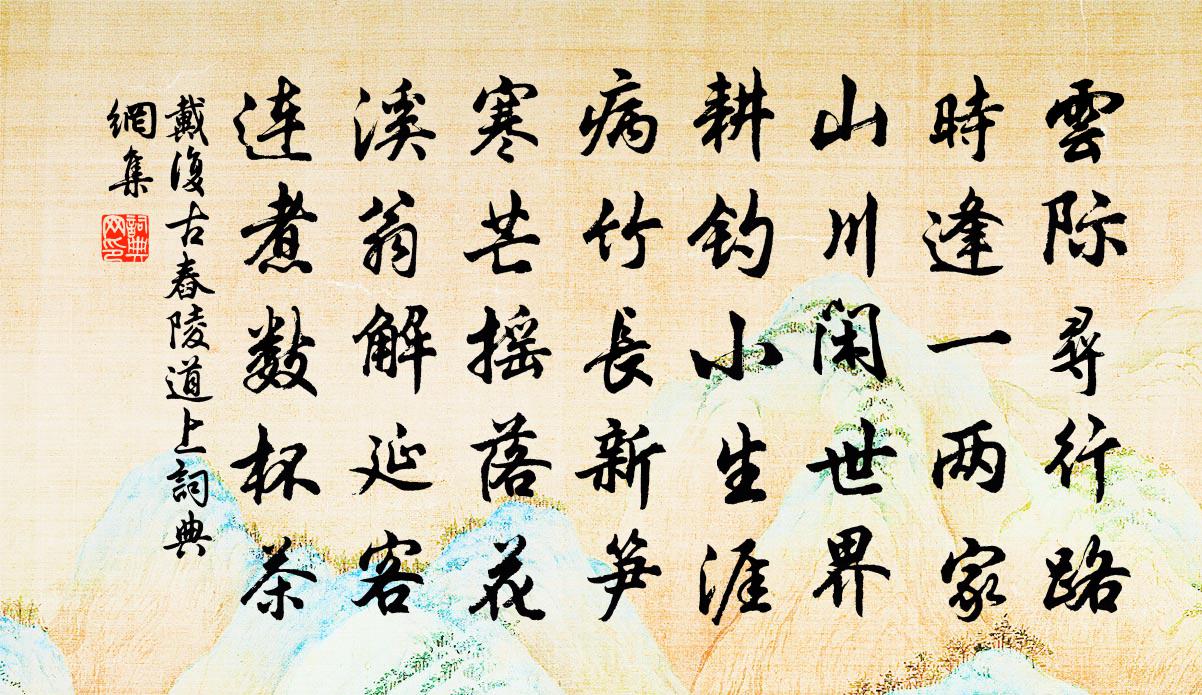 雲际尋行路
時逢一两家
山川闲世界
耕钓小生涯
病竹長新笋
寒芒摇落花
溪翁解延客
连煮数杯茶
戴復古舂陵道上詞典
網集
詞典
网印